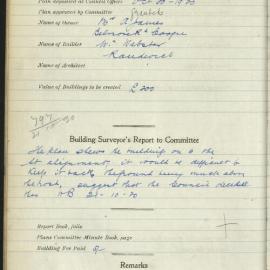 Plan deposited at Council Office Oct 20 - 1920
Plan approved by Committee
Name of Owner Mr A James
Name of Builder Wm Webster
Randwick
Name of Architect
Value of Buildings to be erected £ 200
797
21 10 20
Building Surveyor's Report to Committee
The plan shows the building on to the
St alignment, it would be difficult to
keep it back, the ground being much above
the road, suggest that the Council
this 20 - 10 - 20
Report Book, folio
Plans Committee Minute Book, page
Building Fee Paid
Remarks